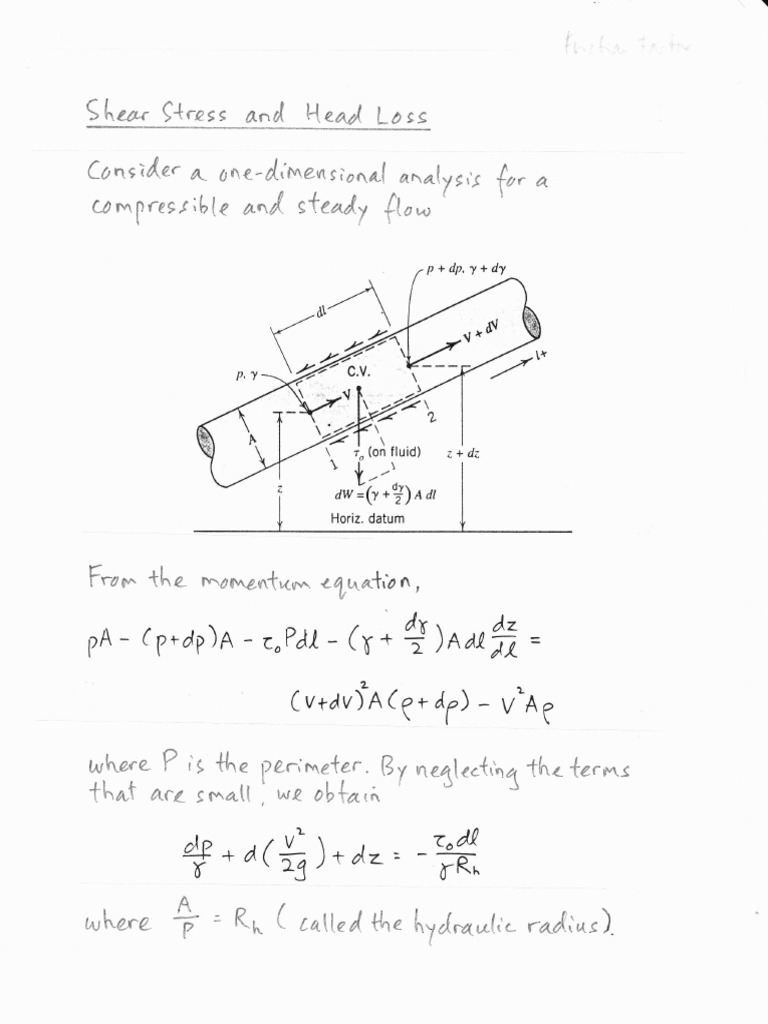 Friction Factor
Shear Stress and Head Loss
Consider a one-dimensional analysis for a
compressible and steady flow
p + dp, γ + dγ
dl
V + dV
l+
p, γ
C.V.
V
A
2
1
τ₀ (on fluid)
z + dz
z
dW = (γ + dγ/2) A dl
Horiz. datum
From the momentum equation,
pA - (p+dp)A - τ₀Pdl - (γ + dγ/2)Adl dz/dl =
(V+dV)²A(ρ+dρ) - V²Aρ
where P is the perimeter. By neglecting the terms
that are small, we obtain
dp/γ + d(V²/2g) + dz = - τ₀dl/γRₕ
where A/P = Rₕ (called the hydraulic radius).